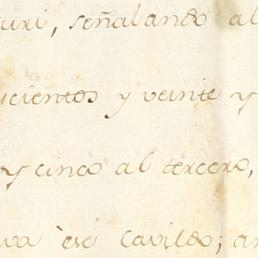 uri, señalando al
scientos y veinte y
y cinco al tercero,
va èse Cavildo; a